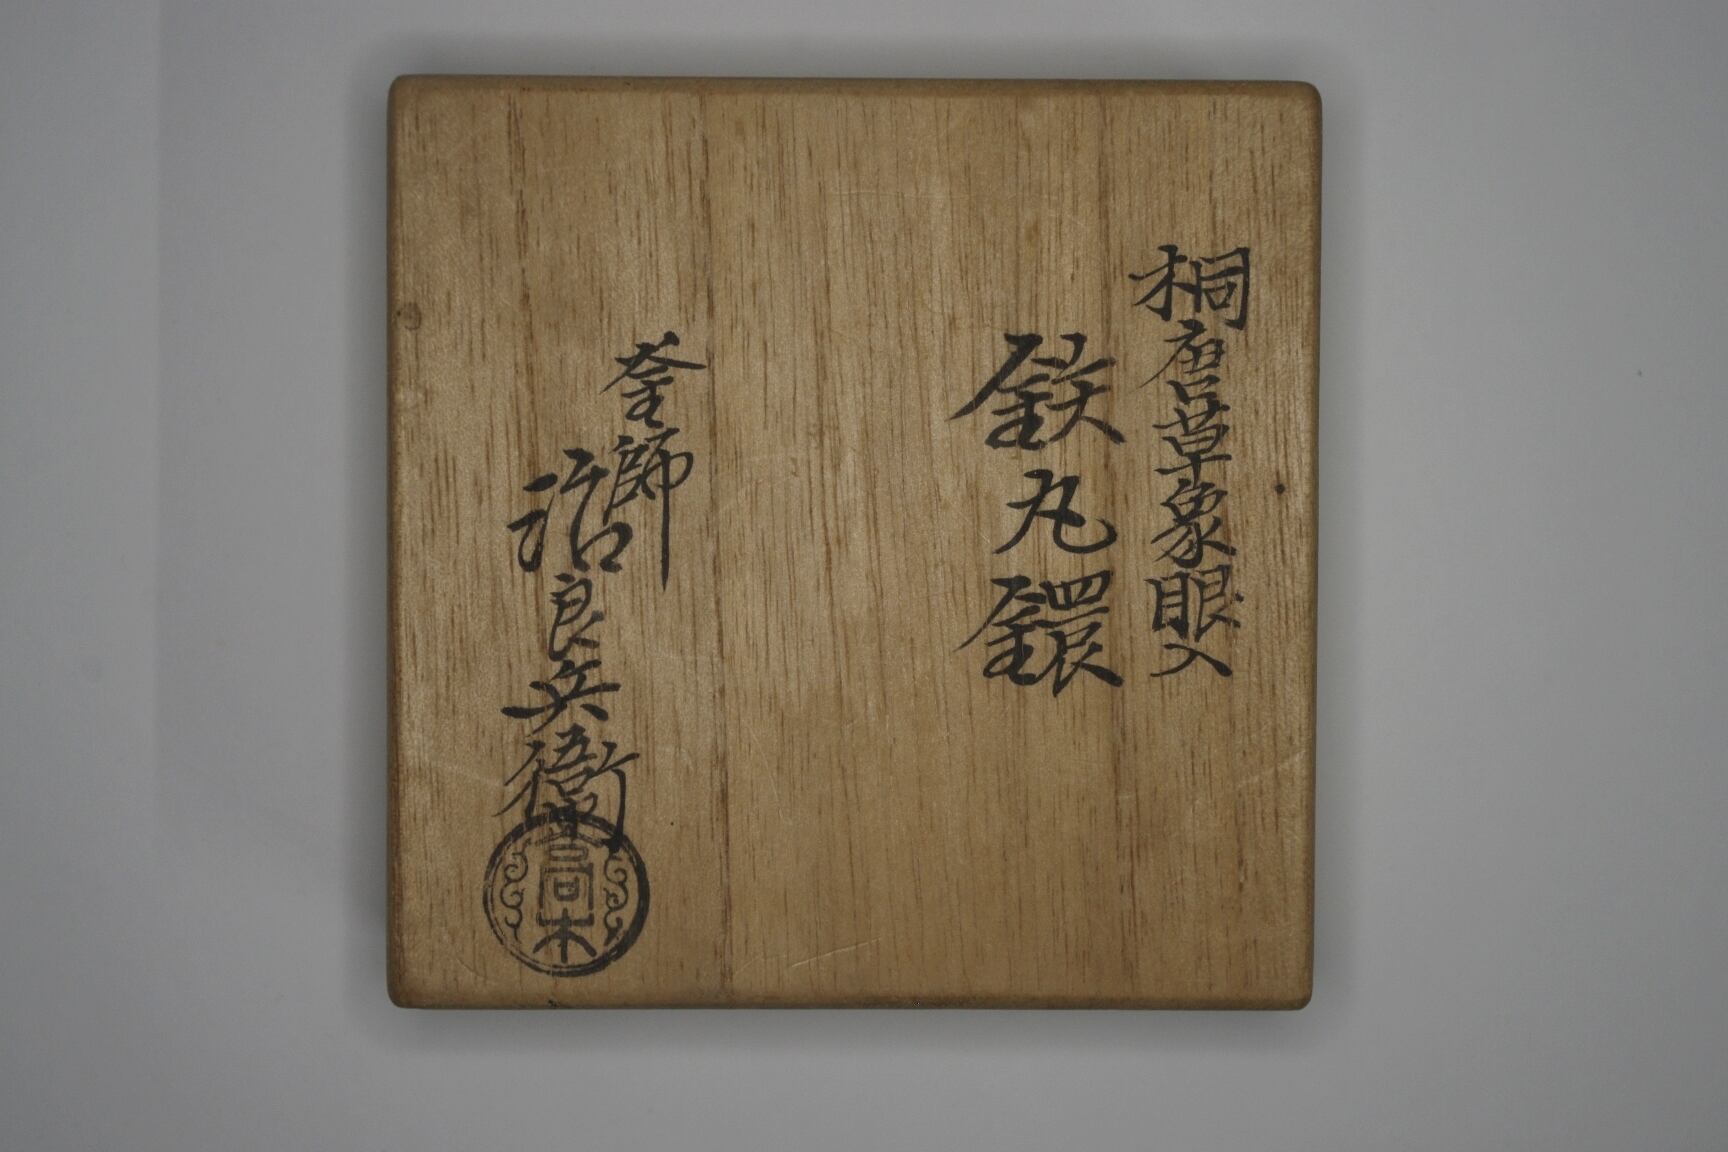 桐唐草象眼入
鉄丸鐶
釜師
治良兵衛
高木